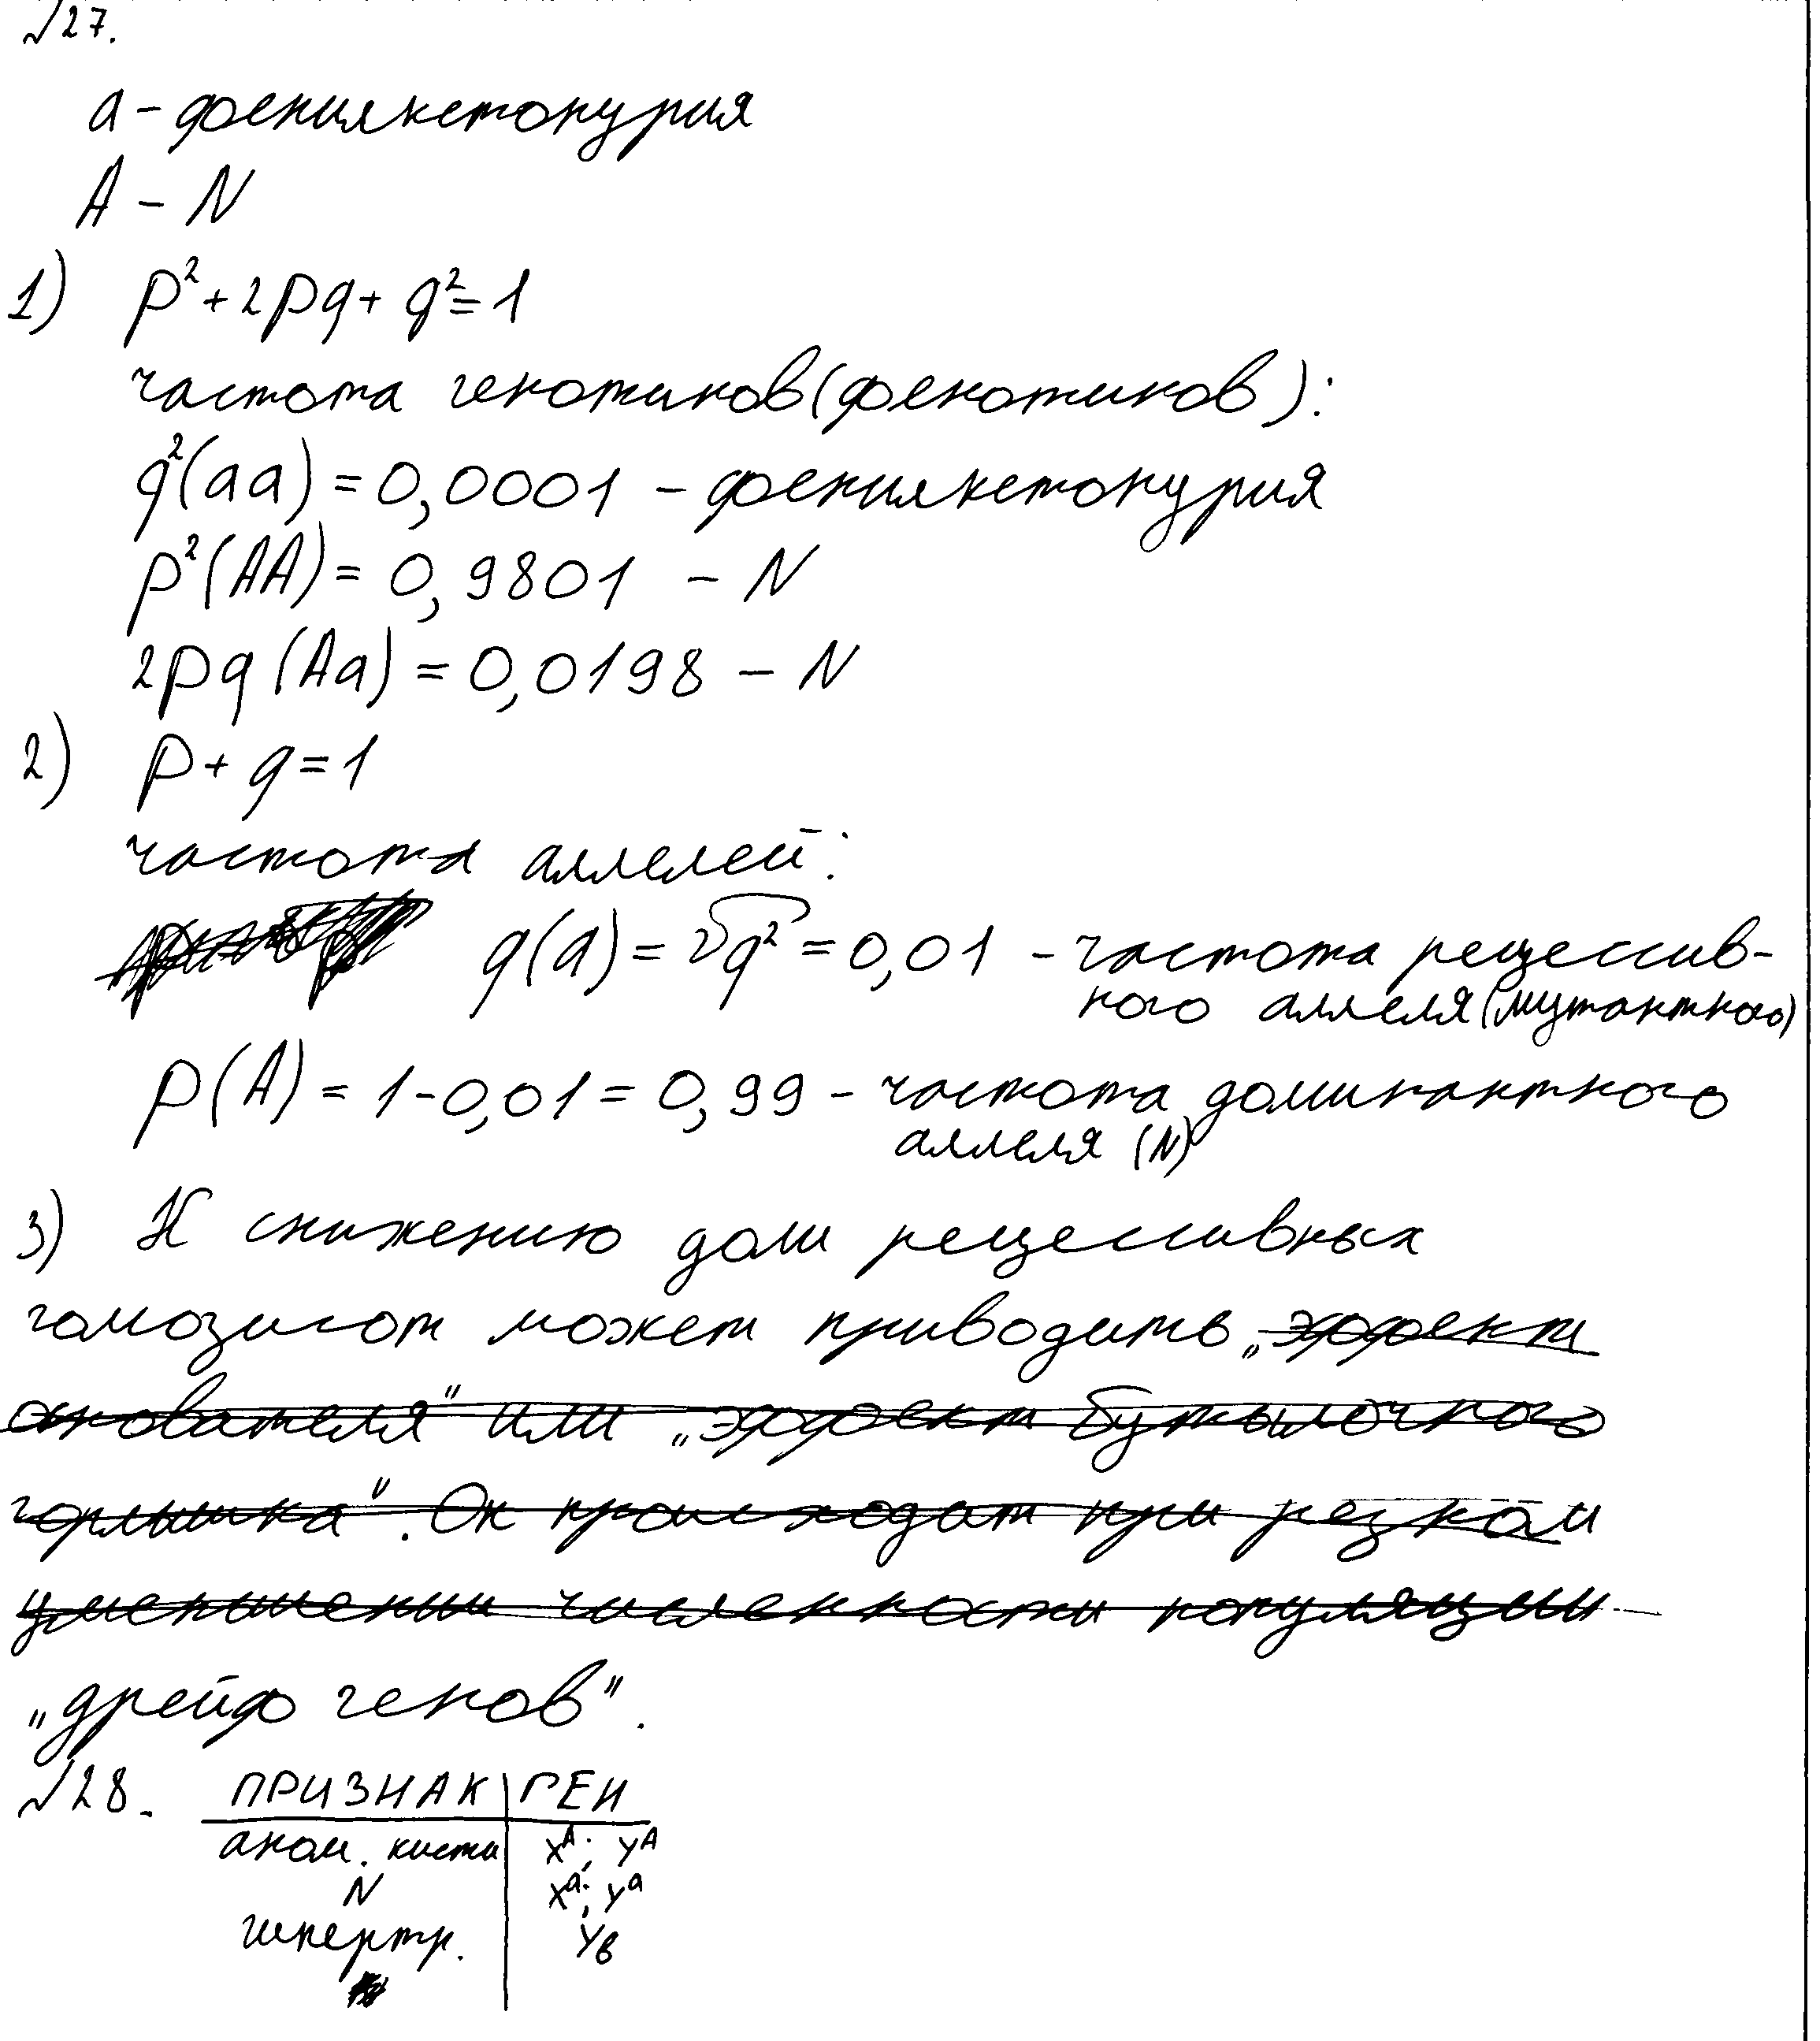 №27.
а - фенилкетонурия
А - N
1) p² + 2pq + q² = 1
частота генотипов (фенотипов):
q²(аа) = 0,0001 - фенилкетонурия
p²(АА) = 0,9801 - N
2pq (Аа) = 0,0198 - N
2) p + q = 1
частота аллелей:
q(а) = √q² = 0,01 - частота рецессив-
ного аллеля (мутантного)
p(А) = 1 - 0,01 = 0,99 - частота доминантного
аллеля (N)
3) К снижению доли рецессивных
гомозигот может приводить „эффект
основателя" или „эффект бутылочного
горлышка". Он происходит при резком
уменьшении численности популяции
„дрейф генов".
№28. ПРИЗНАК | ГЕН
аном. кисти | X^A; Y^A
N | X^a; Y^a
гипертр. | Y_B